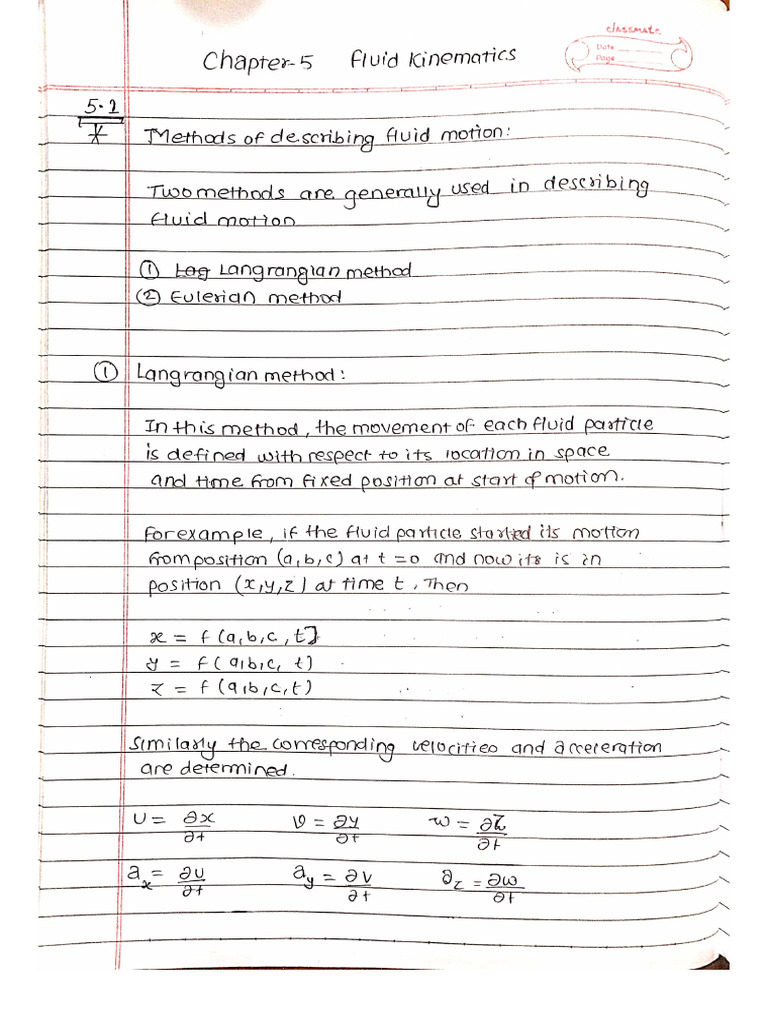 classmate
Date
Page
Chapter-5 Fluid Kinematics
5.1
* Methods of describing fluid motion:
Two methods are generally used in describing
fluid motion
① Lag Langrangian method
② Eulerian method
① Langrangian method:
In this method, the movement of each fluid particle
is defined with respect to its location in space
and time from fixed position at start of motion.
For example, if the fluid particle started its motion
from position (a,b,c) at t=0 and now its is in
position (x,y,z) at time t. Then
x = f(a,b,c,t]
y = f(a,b,c, t)
z = f(a,b,c,t)
Similarly the corresponding velocities and acceleration
are determined.
u = ∂x/∂t v = ∂y/∂t w = ∂z/∂t
a_x = ∂u/∂t a_y = ∂v/∂t a_z = ∂w/∂t